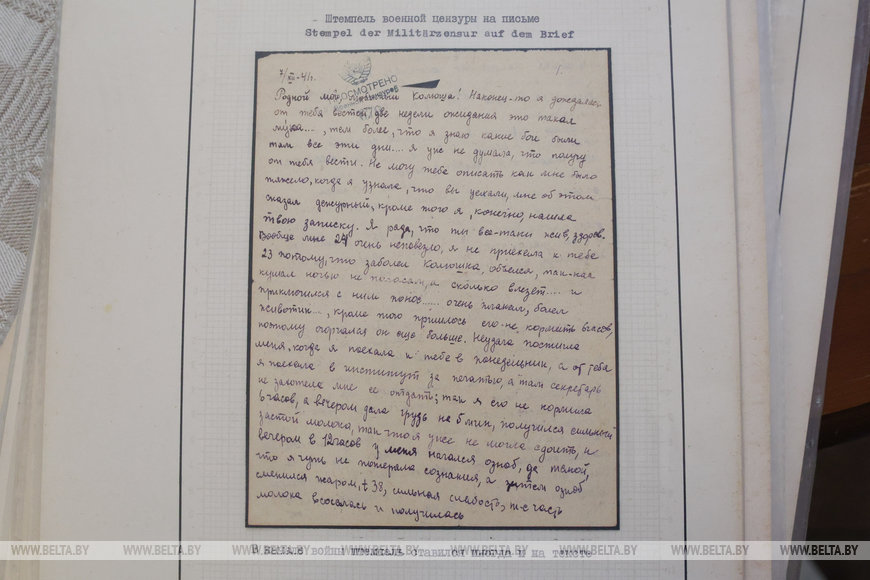 Штемпель военной цензуры на письме
Stempel der Militärzensur auf dem Brief
1.
7/XII-41г.
ОСМОТРЕНО
Родной мой Колюша! Наконец-то я дождалась
от тебя вестей, две недели ожидания это такая
мука..., тем более, что я знаю какие бои были
там все эти дни.... Я уже не думала, что получу
от тебя вести. Не могу тебе описать как мне было
тяжело, когда я узнала, что вы уехали, мне об этом
сказал дежурный, кроме того я, конечно, нашла
твою записку. Я рада, что ты все-таки жив, здоров.
Вообще мне 24 очень неповезло, я не приехала к тебе
23 потому, что заболел Колюшка, объелся, так-как
кушал ночью не по часам, а сколько влезет.... и
приключился с ним понос...... очень плакал, болел
животик..., кроме того пришлось его не кормить 6 часов,
поэтому огорчался он еще больше. Неудача постигла
меня, когда я поехала к тебе в понедельник, а от тебя
я поехала в институт за печатью, а там секретарь
не захотела мне ее отдать; так я его не кормила
6 часов, а вечером дала грудь на 5 мин, получился сильный
застой молока, так что я уже не могла сдоить, и
вечером в 12 часов у меня начался озноб, да такой,
что я чуть не потеряла сознания, а затем озноб
сменился жаром, t 38, сильная слабость, т-е часть
молока всосалась и получилась
В начале войны штемпель ставился иногда и на тексте
WWW.BELTA.BY WWW.BELTA.BY WWW.BELTA.BY WWW.BELTA.BY WWW.BELTA.BY WWW.BELTA.BY